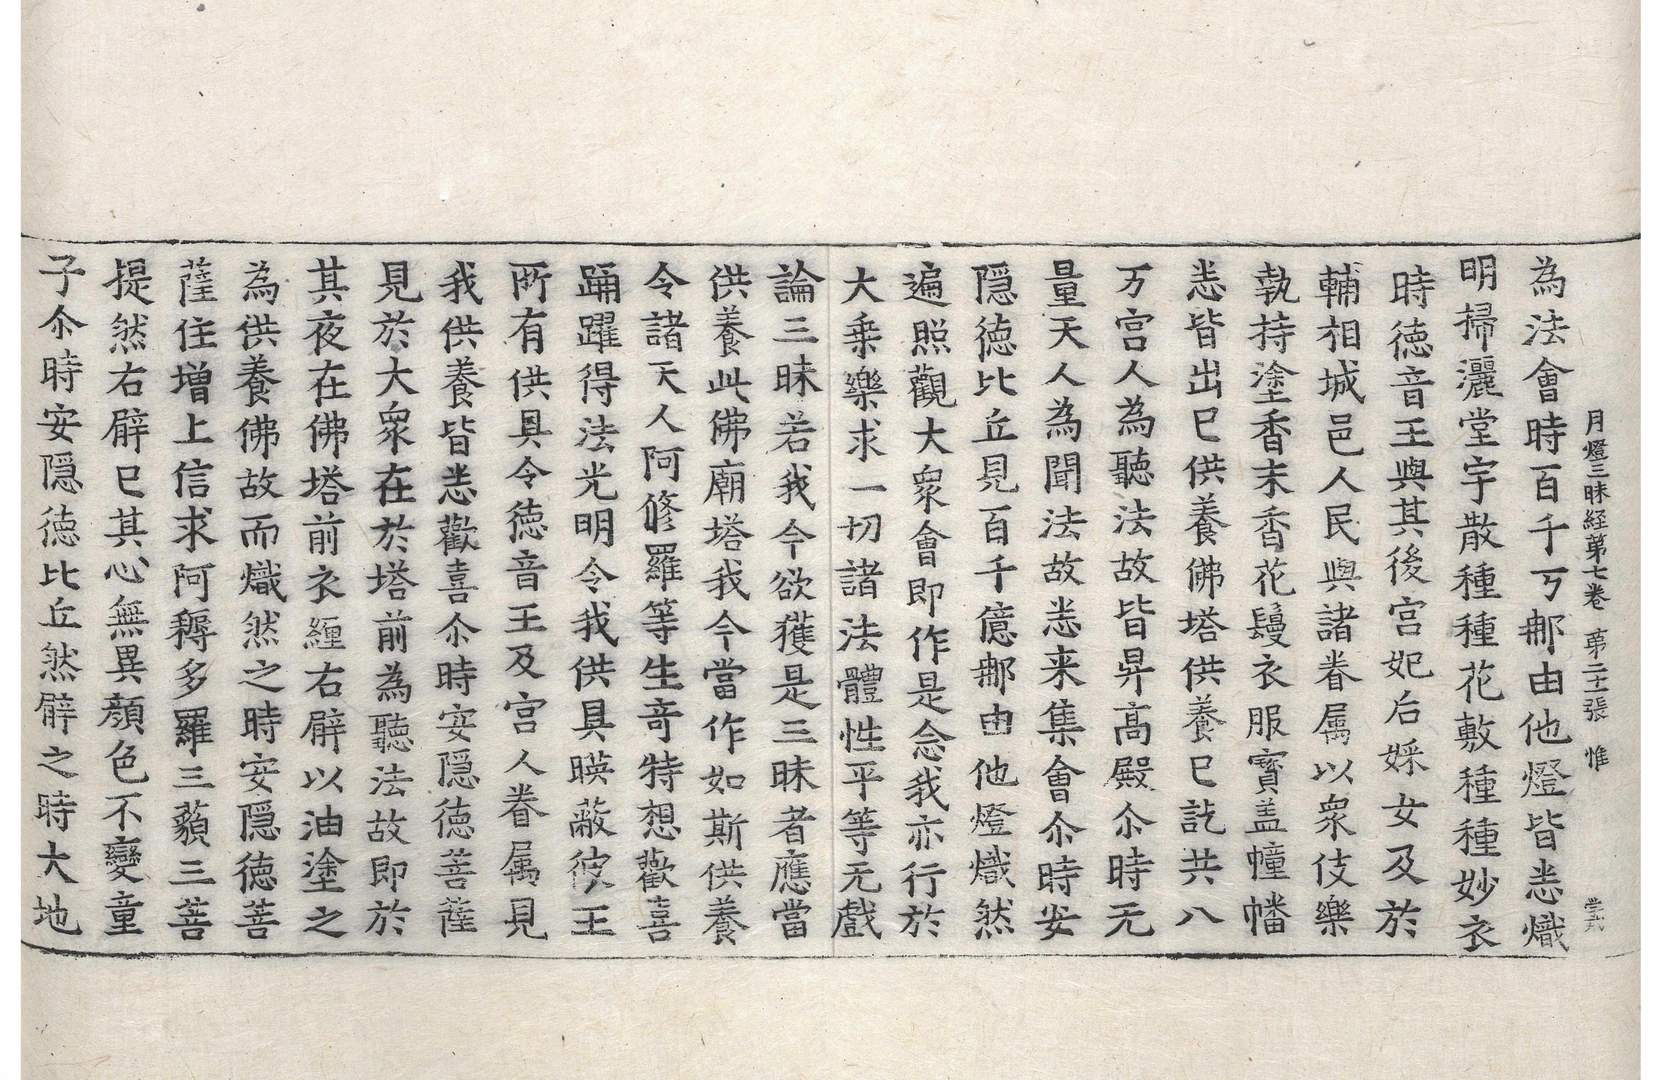 月燈三昧経第七卷 第二十張 惟
為法會時百千丂𨙻由他燈皆悉熾
明掃灑堂宇散種種花敷種種妙衣
時徳音王與其後宫妃后婇女及於
輔相城邑人民與諸眷属以衆伎樂
執持塗香末香花鬘衣服寳盖幢幡
悉皆出巳供養佛塔供養巳訖共八
万宫人為聽法故皆昇髙殿尒時无
量天人為聞法故悉来集會尒時安
隠徳比丘見百千億𨙻由他燈熾然
遍照觀大衆會即作是念我亦行於
大乗樂求一切諸法體性平等无戲
論三昧若我今欲獲是三昧者應當
供養此佛廟塔我今當作如斯供養
令諸天人阿修羅等生竒特想歡喜
踊躍得法光明令我供具暎蔽彼王
所有供具令徳音王及宫人眷属見
我供養皆悉歡喜尒時安隠徳菩薩
見於大衆在於塔前為聽法故即於
其夜在佛塔前衣纏右臂以油塗之
為供養佛故而熾然之時安隠徳菩
薩住増上信求阿耨多羅三藐三菩
提然右臂巳其心無異顔色不變童
子尒時安隠徳比丘然臂之時大地